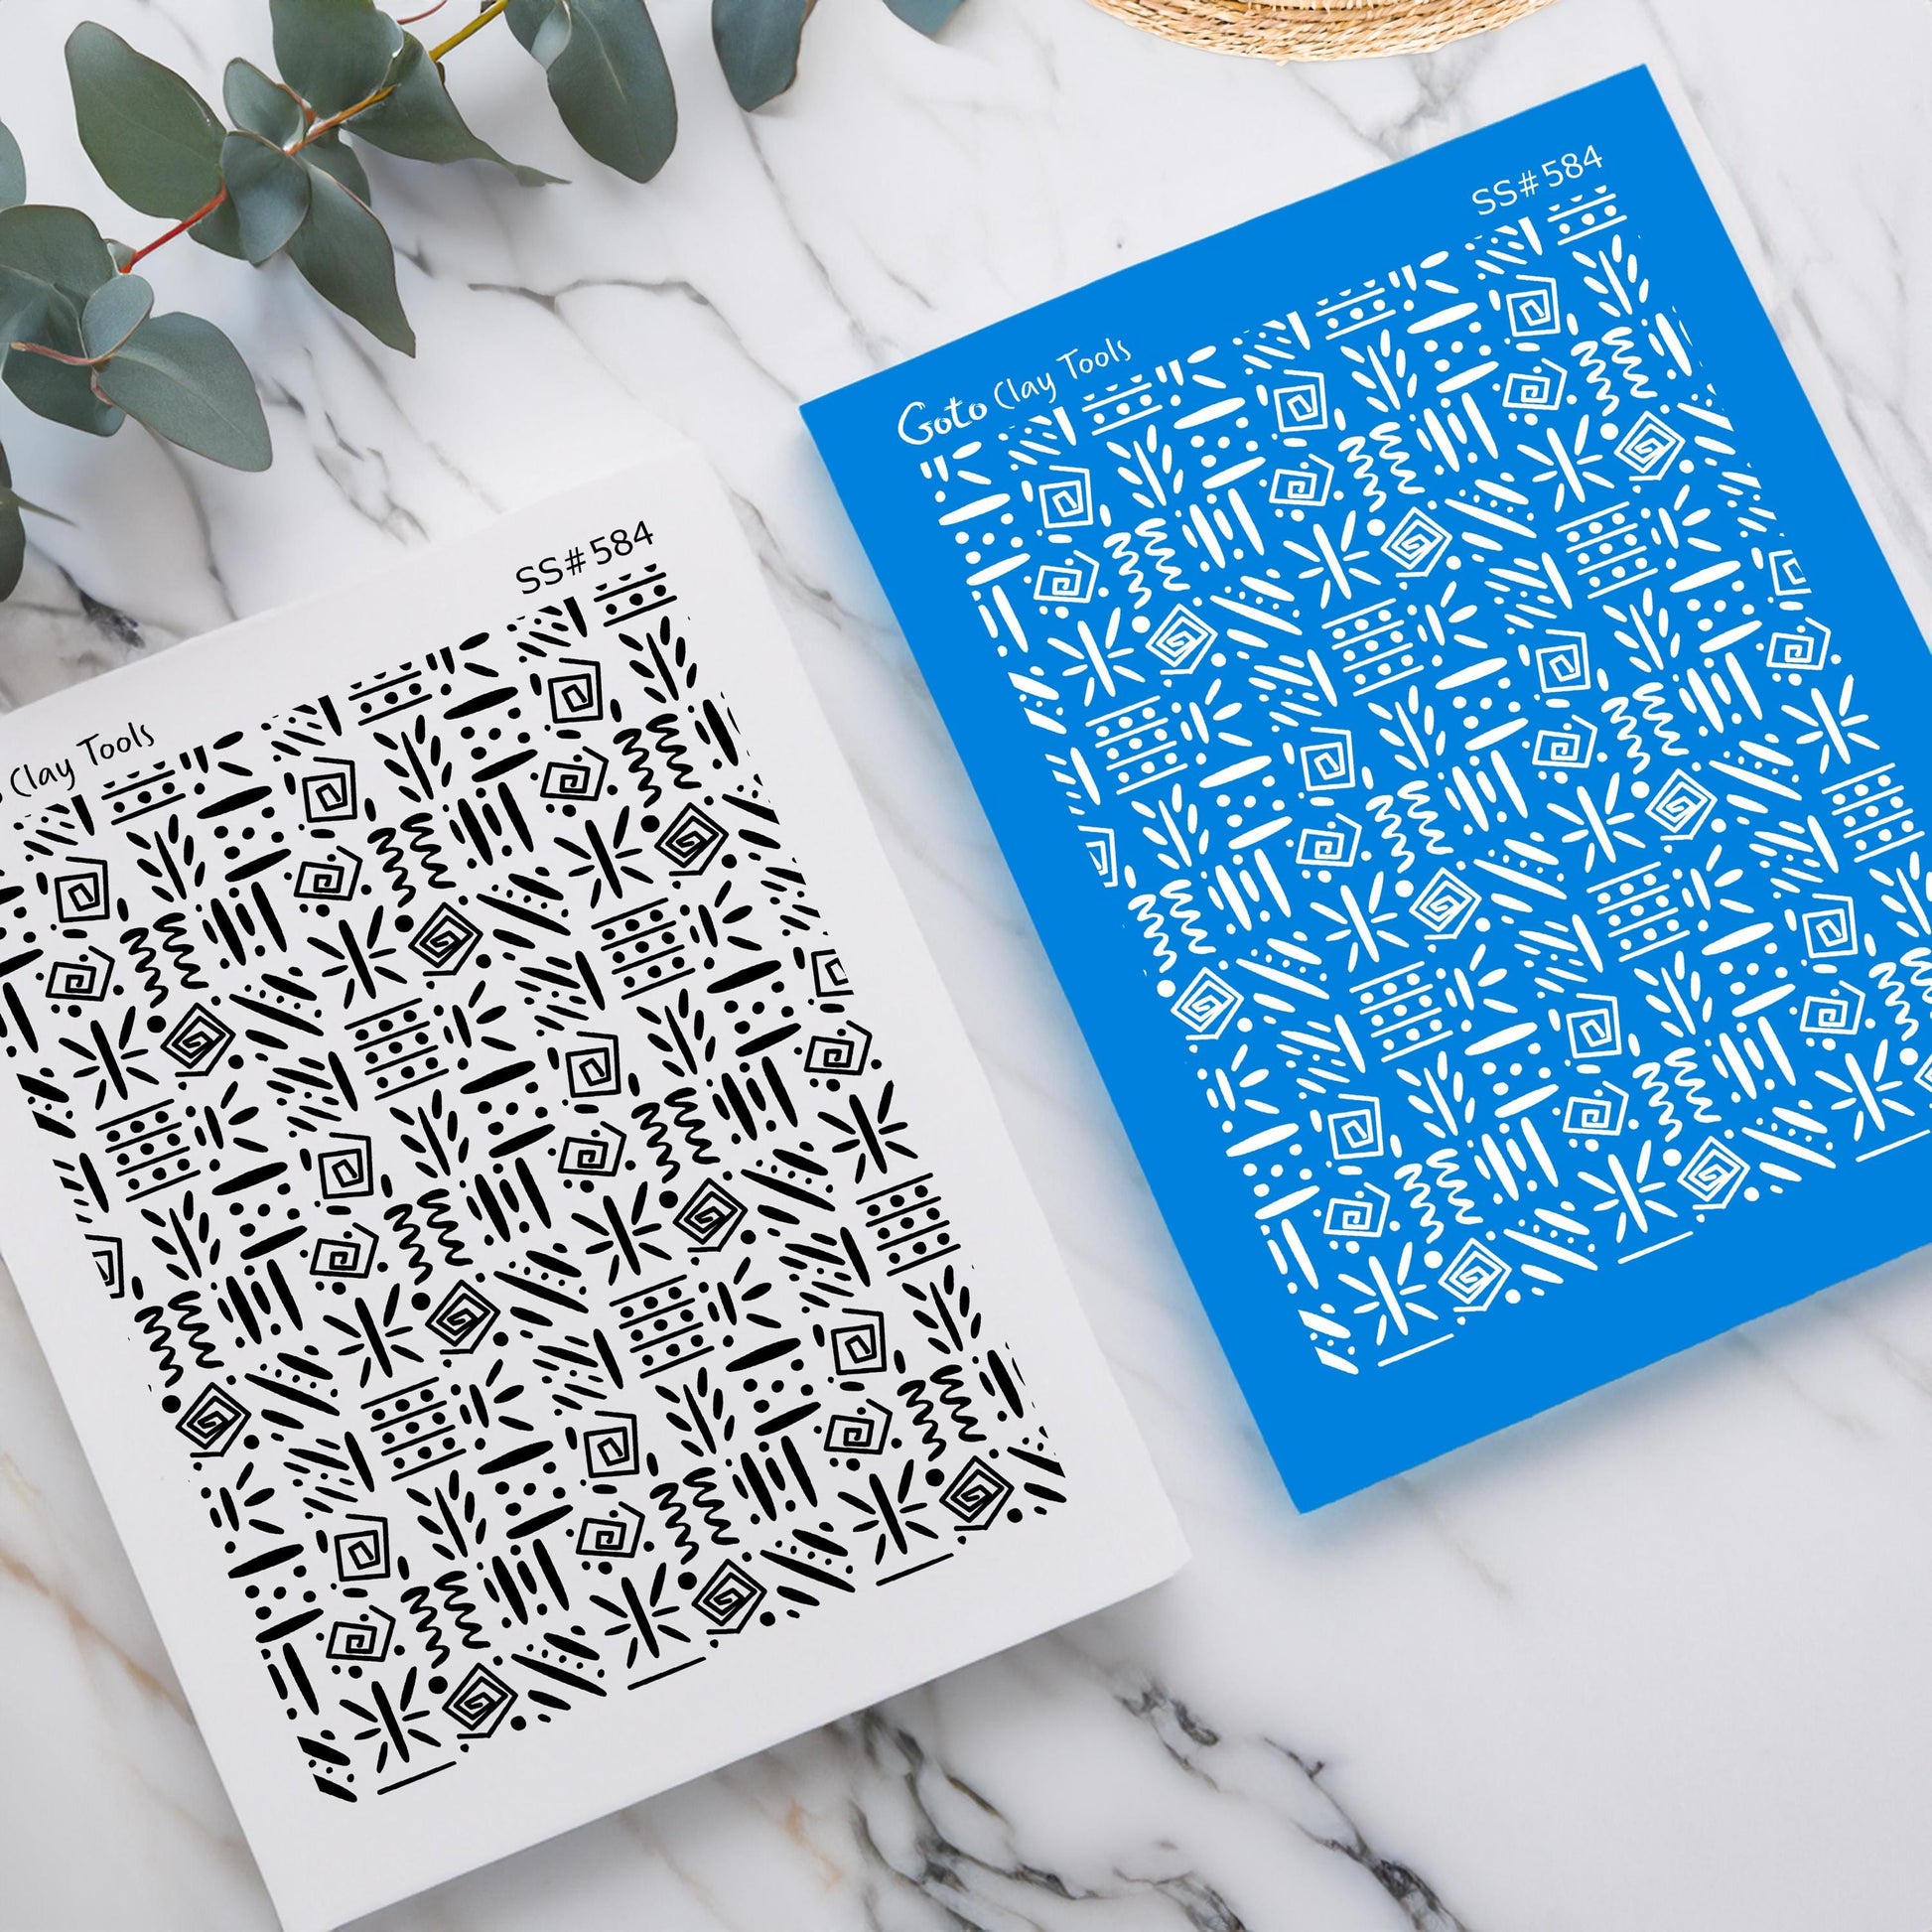 SS#584
Clay Tools
SS#584
Goto Clay Tools